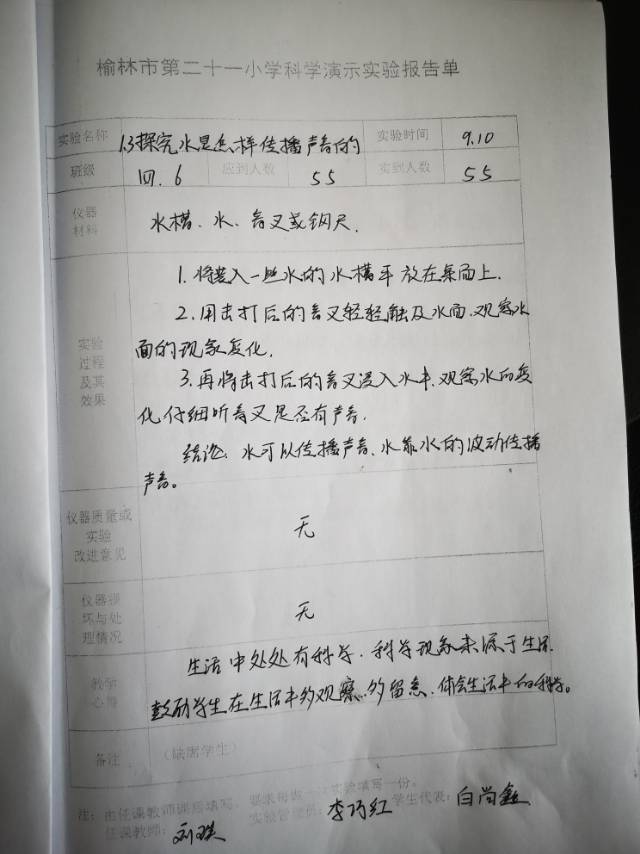 榆林市第二十一小学科学演示实验报告单
实验名称 1.3探究水是怎样传播声音的 实验时间 9.10
班级 四.6 应到人数 55 实到人数 55
仪器
材料
水槽、水、音叉或钢尺.
实验
过程
及其
效果
1. 将装入一些水的水槽平放在桌面上.
2. 用击打后的音叉轻轻触及水面.观察水
面的现象变化.
3. 再将击打后的音叉浸入水中.观察水的变
化仔细听音叉是否有声音.
结论: 水可以传播声音.水靠水的波动传播
声音。
仪器质量或
实验
改进意见
无
仪器损
坏与处
理情况
无
教学
心得
生活中处处有科学.科学现象来源于生活.
鼓励学生在生活中多观察.多留意.体会生活中的科学。
备注 (缺席学生)
注:由任课教师课后填写,要求每做一次实验填写一份。
任课教师: 实验管理员:李巧红 学生代表:白尚鑫